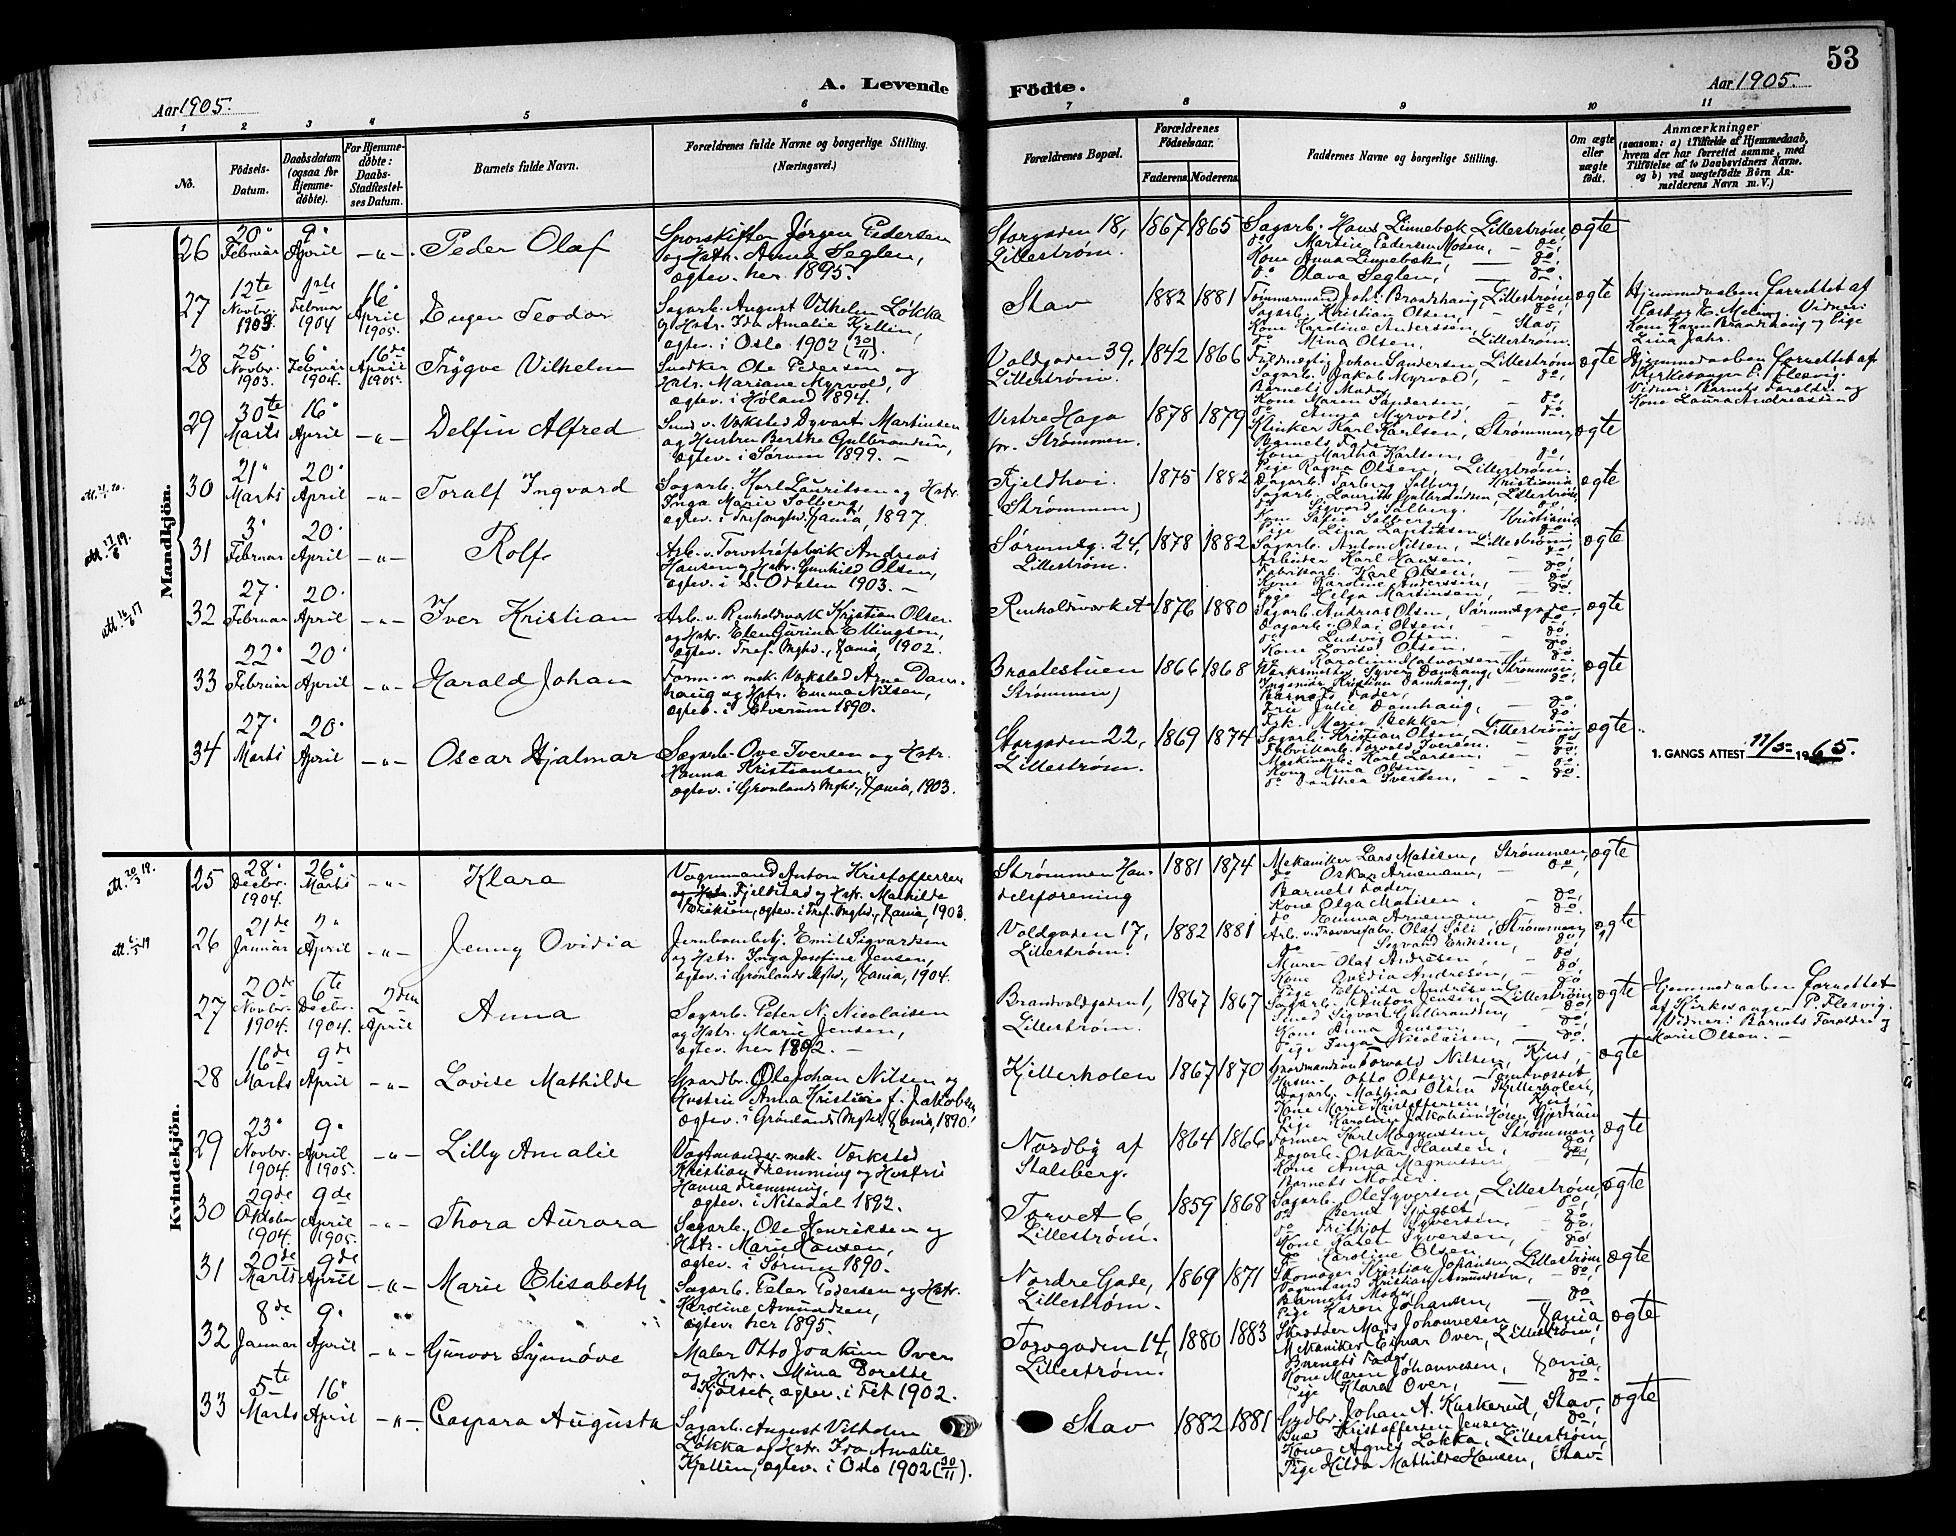 53
Aar 1905.
A. Levende
Födte.
Aar 1905.
1 2 3 4 5 6 7 8 9 10 11
No.
Födsels-
Datum.
Daabsdatum
(ogsaa for
Hjemme-
döbte).
For Hjemme-
döbte:
Daabs-
Stadfæstel-
ses Datum.
Barnets fulde Navn.
Forældrenes fulde Navne og borgerlige Stilling.
(Næringsvei.)
Forældrenes Bopæl.
Forældrenes
Födselsaar.
Faderens. Moderens.
Faddernes Navne og borgerlige Stilling.
Om ægte
eller
uægte
födt.
Anmærkninger
(saasom: a) i Tilfælde af Hjemmedaab,
hvem der har forrettet samme, med
Tilföielse af to Daabsvidners Navne,
og b) ved uægtefödte Börn An-
melderens Navn m. V.)
Mandkjön.
26 20. Februar 9. April -"- Peder Olaf
Sporskifter Jørgen Pedersen
og Hstr. Anna Seglen,
ægtev. her 1895.
Storgaden 18,
Lillestrøm.
1867 1865
Sagarb. Hans Linnebæk Lillestrøm
do Martin Pedersen Mosen, - do,
Kone Anna Linnebæk - do,
do Olava Seglen, - do.
ægte
27 12te Novbr. 1903 1ste Februar 1904 16. April 1905. Eugen Teodor
Sagarb. August Vilhelm Løkka
og Hstr. Ida Amalie Kjellin,
ægtev. i Oslo 1902 (30/11).
Stav
1882 1881
Tømmermand Johs. Brandhaug, Lillestrøm
Sagarb. Kristian Olsen, do,
Kone Karoline Anderssen, Stav,
do Mina Olsen, Lillestrøm.
ægte
Hjemmedaaben forrettet af
Pastor E. Melmy. Vidner:
Kone Karen Brandhaug og Pige
Lina Jahr.
28 25. Novbr. 1903. 6. Februar 1904. 16de April 1905. Trygve Vilhelm
Snedker Ole Pedersen og
Hstr. Mariane Myrvold,
ægtev. i Høland 1894.
Voldgaden 39,
Lillestrøm.
1842 1866
Johan Sandersen Lillestrøm
Sagarb. Jakob Myrvold, - do,
Barnets Moder
Kone Maren Sandersen - do,
do Anna Myrvold, do.
ægte
Hjemmedaaben forrettet af
Kirkesanger P. Flesvig.
Vidner: Barnets Forældre og
Kone Laura Andreassen
29 30te Marts 16. April -"- Delfin Alfred
Smed v. Værksted Dyvart Martinsen
og Hustru Berthe Gulbrandsen,
ægtev. i Sørum 1899. -
Vestre Haga
pr. Strømmen.
1878 1879
Klinker Karl Karlsen, Strømmen,
Barnets Fader,
Kone Martha Karlsen, do,
Pige Ragna Olsen, Lillestrøm.
ægte
30 21. Marts 20. April -"- Toralf Ingvard
Sagarb. Karl Lauritsen og Hstr.
Inga Marie Solberg,
ægtev. i Trefoldighed, Xania, 1897.
Fjeldhvi.
(Strømmen)
1875 1882
Dagarb. Torberg Solberg, Kristiania
Sagarb. Laurits Gulbrandsen, Lillestrøm
Sigvard Solberg.
Kone Sofie Solberg Kristiania
Pige Lina Lauritsen, do
ægte
31 3. Februar 20. April -"- Rolf
Arb. v. Torvstrøfabrik Andreas
Hansen og Hstr. Gunhild Olsen,
ægtev. i S. Odalen 1903. -
Sørumsg. 24,
Lillestrøm.
1878 1882
Sagarb. Anton Nilsen, Lillestrøm
Arbeider Karl Hansen, - do,
Fabrikarb. Karl Olsen, do
Kone Karoline Anderssen, - do,
Pige Helga Martinsen, - do.
ægte
32 27. Februar 20. April -"- Iver Kristian
Arb. v. Renholdsværk Kristian Olsen
og Hstr. Elen Gurine Ellingsen,
ægtev. Tref. Mghd., Xania, 1902.
Renholdsværket
1876 1880
Sagarb. Andreas Olsen, Sørumsgade
Dagarb. Olai Olsen, do,
do Ludvig Olsen. do,
Kone Lovise Olsen. - do,
do Karoline Halvorsen do.
ægte
33 22. Februar 20. April -"- Harald Johan
Form. v. mek. Værksted Arne Dam-
haug og Hstr. Emma Nilsen,
ægtev. i Elverum 1890.
Braatestuen
(Strømmen)
1866 1868
Værksmester Syver Damhaug, Strømmen
Ingeniør Kristian Damhaug, do.
Barnets Fader,
Frue Julie Damhaug, - do,
Frk. Marie Bekker do
ægte
34 27. Marts 20. April -"- Oscar Hjalmar
Sagarb. Ove Iversen og Hstr.
Hanna Kristiansen,
ægtev. i Grønlands Mghd., Xania, 1903.
Storgaden 22,
Lillestrøm.
1869 1874
Sagarb. Kristian Olsen, Lillestrøm
Fabrikarb. Torvald Iversen. - do,
Maskinarb. Karl Larsen - do,
Kone Mina Olsen, - do,
do Dorthea Iversen, - - do.
ægte
1. GANGS ATTEST 11/5 1965.
Kvindekjön.
att. 20/3 19.
25 28. Decbr. 1904. 26. Marts -"- Klara
Vognmand Anton Kristoffersen
og Hstr. Fjeldstad og Hstr. Mathilde
Eriksen, ægtev. i Tref. Mghd., Xania, 1903.
Strømmen Han-
delsforening
1881 1874
Mekaniker Lars Matisen, Strømmen,
do Oskar Arnemann, - do,
Barnets Fader,
Kone Olga Matisen, do,
do Emma Arnemann do.
ægte
26 21de Januar 2. April -"- Jenny Ovidia
Jernbanebetj. Emil Sigvardsen
og Hstr. Inga Josefine Jensen,
ægtev. i Grønlands Mghd., Xania, 1904.
Voldgaden 17,
Lillestrøm.
1882 1881
Arb. v. Trævarefabr. Olaf Soli, Strømmen
do Sigvard Eriksen, do,
Murer Olaf Andresen, do
Kone Ovidia Andresen, - do,
Pige Elfrida Andresen do
ægte
27 20de Novbr. 1904. 6te Decbr. 1904. 2den April Anna
Sagarb. Peter N. Nicolaisen
og Hstr. Marie Jensen,
ægtev. her 1892. -
Brandvoldgaden 1,
Lillestrøm.
1867 1867
Sagarb. Anton Jensen, Lillestrøm
Smed Sigvart Gulbrandsen, do,
Kone Anna Jensen, - do,
Pige Inga Nicolaisen, - do.
ægte
Hjemmedaaben forrettet
af Kirkesanger P. Flesvig.
Vidner: Barnets Forældre og
Marie Olsen. -
28 16de Marts 9de April -"- Lovise Mathilde
Gaardbr. Ole Johan Nilsen og
Hustru Anna Kristine f. Jakobsen,
ægtev. i Grønlands Mghd., Xania, 1890.
Kjellerholen
1867 1870
Gaardmandssøn Torvald Nilsen, Kjus,
Husm. Otto Olsen,
Dagarb. Mathias Olsen Kjellerholen,
Kone Marie Kristoffersen, Kjus
Pige Karoline Jakobsen,
ægte
29 23. Novbr. 1904. 9. April 1905 -"- Lilly Amalie
Vagtmand v. mek. Værksted
Kristian Fremming og Hustru
Hanna Fremming,
ægtev. i Nitedal 1892.
Nordby af
Stalsberg.
1864 1866
Former Karl Magnussen, Strømmen
Dagarb. Oskar Hansen, do,
Kone Anna Magnussen do,
Barnets Moder.
ægte
30 29de Oktober 1904. 9de April 1905. -"- Thora Aurora
Sagarb. Ole Henriksen og
Hstr. Marie Hansen,
ægtev. i Sørum 1890.
Torvet 6,
Lillestrøm.
1859 1868
Sagarb. Ole Syversen, Lillestrøm,
do Bernt do,
do Fritjof Syversen, do
Kone Karen Syversen, do
do Karoline Olsen
ægte
31 20de Marts 9de April -"- Marie Elisabeth
Sagarb. Peter Pedersen og Hstr.
Karoline Amundsen,
ægtev. her 1895.
Nordre Gade,
Lillestrøm.
1869 1871
Skomager Kristian Johansen, Lillestrøm,
Vognmand Kristian Amundsen, - do,
Barnets Moder, do
Pige Karen Johansen,
ægte
32 8de Januar 9. April -"- Gunvor Synnøve
Maler Otto Joakim Over
og Hstr. Mina Dorette
Kjølset, ægtev. i Fet 1902.
Torvgaden 14,
Lillestrøm.
1880 1883
Skrædder Mads Johannesen, Xania
Mekaniker Einar Over, Lillestrøm,
Barnets Fader
Kone Maren Johannesen, Xania,
Pige Klara Over, - do.
ægte
33 5te Marts 16. April -"- Caspara Augusta
Sagarb. August Vilhelm
Løkka og Hstr. Ida Amalie
Kjellin, ægtev. i Oslo 1902 (30/11).
Stav
1882 1881
Grdbr. Johan A. Kuskerud, Stav,
Smed Kristoffersen Jensen do,
Kone Agnes Løkka, Lillestrøm,
Pige Hilda Mathilde Hansen, Stav
ægte